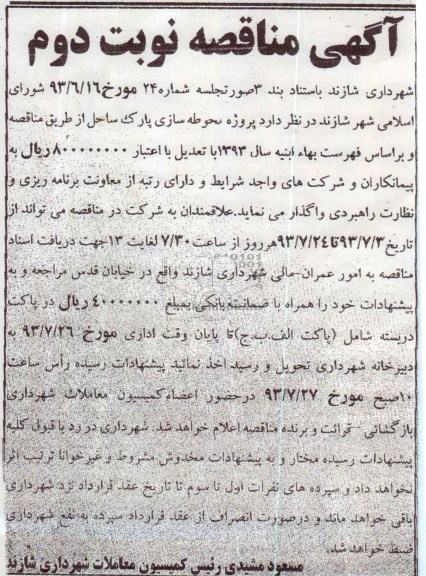 آگهی مناقصه نوبت دوم
شهرداری شازند باستناد بند ۳صورتجلسه شماره۲۴ مورخ۹۳/۶/۱۶ شورای
اسلامی شهر شازند در نظر دارد پروژه محوطه سازی پارک ساحل از طریق مناقصه
و براساس فهرست بهاء ابنیه سال ۱۳۹۳با تعدیل با اعتبار ۸۰۰۰۰۰۰۰۰ریال به
پیمانکاران و شرکت های واجد شرایط و دارای رتبه از معاونت برنامه ریزی و
نظارت راهبردی واگذار می نماید.علاقمندان به شرکت در مناقصه می تواند از
تاریخ۹۳/۷/۳تا۹۳/۷/۲۴هرروز از ساعت ۷/۳۰ لغایت ۱۳جهت دریافت اسناد
مناقصه به امور عمران-مالی شهرداری شازند واقع در خیابان قدس مراجعه و به
پیشنهادات خود را همراه با ضمانت بانکی بمبلغ ۴۰۰۰۰۰۰۰ ریال در پاکت
دربسته شامل (پاکت الف.ب.ج)تا پایان وقت اداری مورخ ۹۳/۷/۲۶ به
دبیرخانه شهرداری تحویل و رسید اخذ نمائید پیشنهادات رسیده رأس ساعت
۱۰صبح مورخ ۹۳/۷/۲۷ درحضور اعضاءکمیسیون معاملات شهرداری
بازگشائی -قرائت و برنده مناقصه اعلام خواهد شد. شهرداری در رد یا قبول کلیه
پیشنهادات رسیده مختار و به پیشنهادات مخدوش مشروط و غیرخوانا ترتیب اثر
نخواهد داد و سپرده های نفرات اول تا سوم تا تاریخ عقد قرارداد نزد شهرداری
باقی خواهد ماند و درصورت انصراف از عقد قرارداد سپرده به نفع شهرداری
ضبط خواهد شد.
مسعود مشیدی رئیس کمیسیون معاملات شهرداری شازند